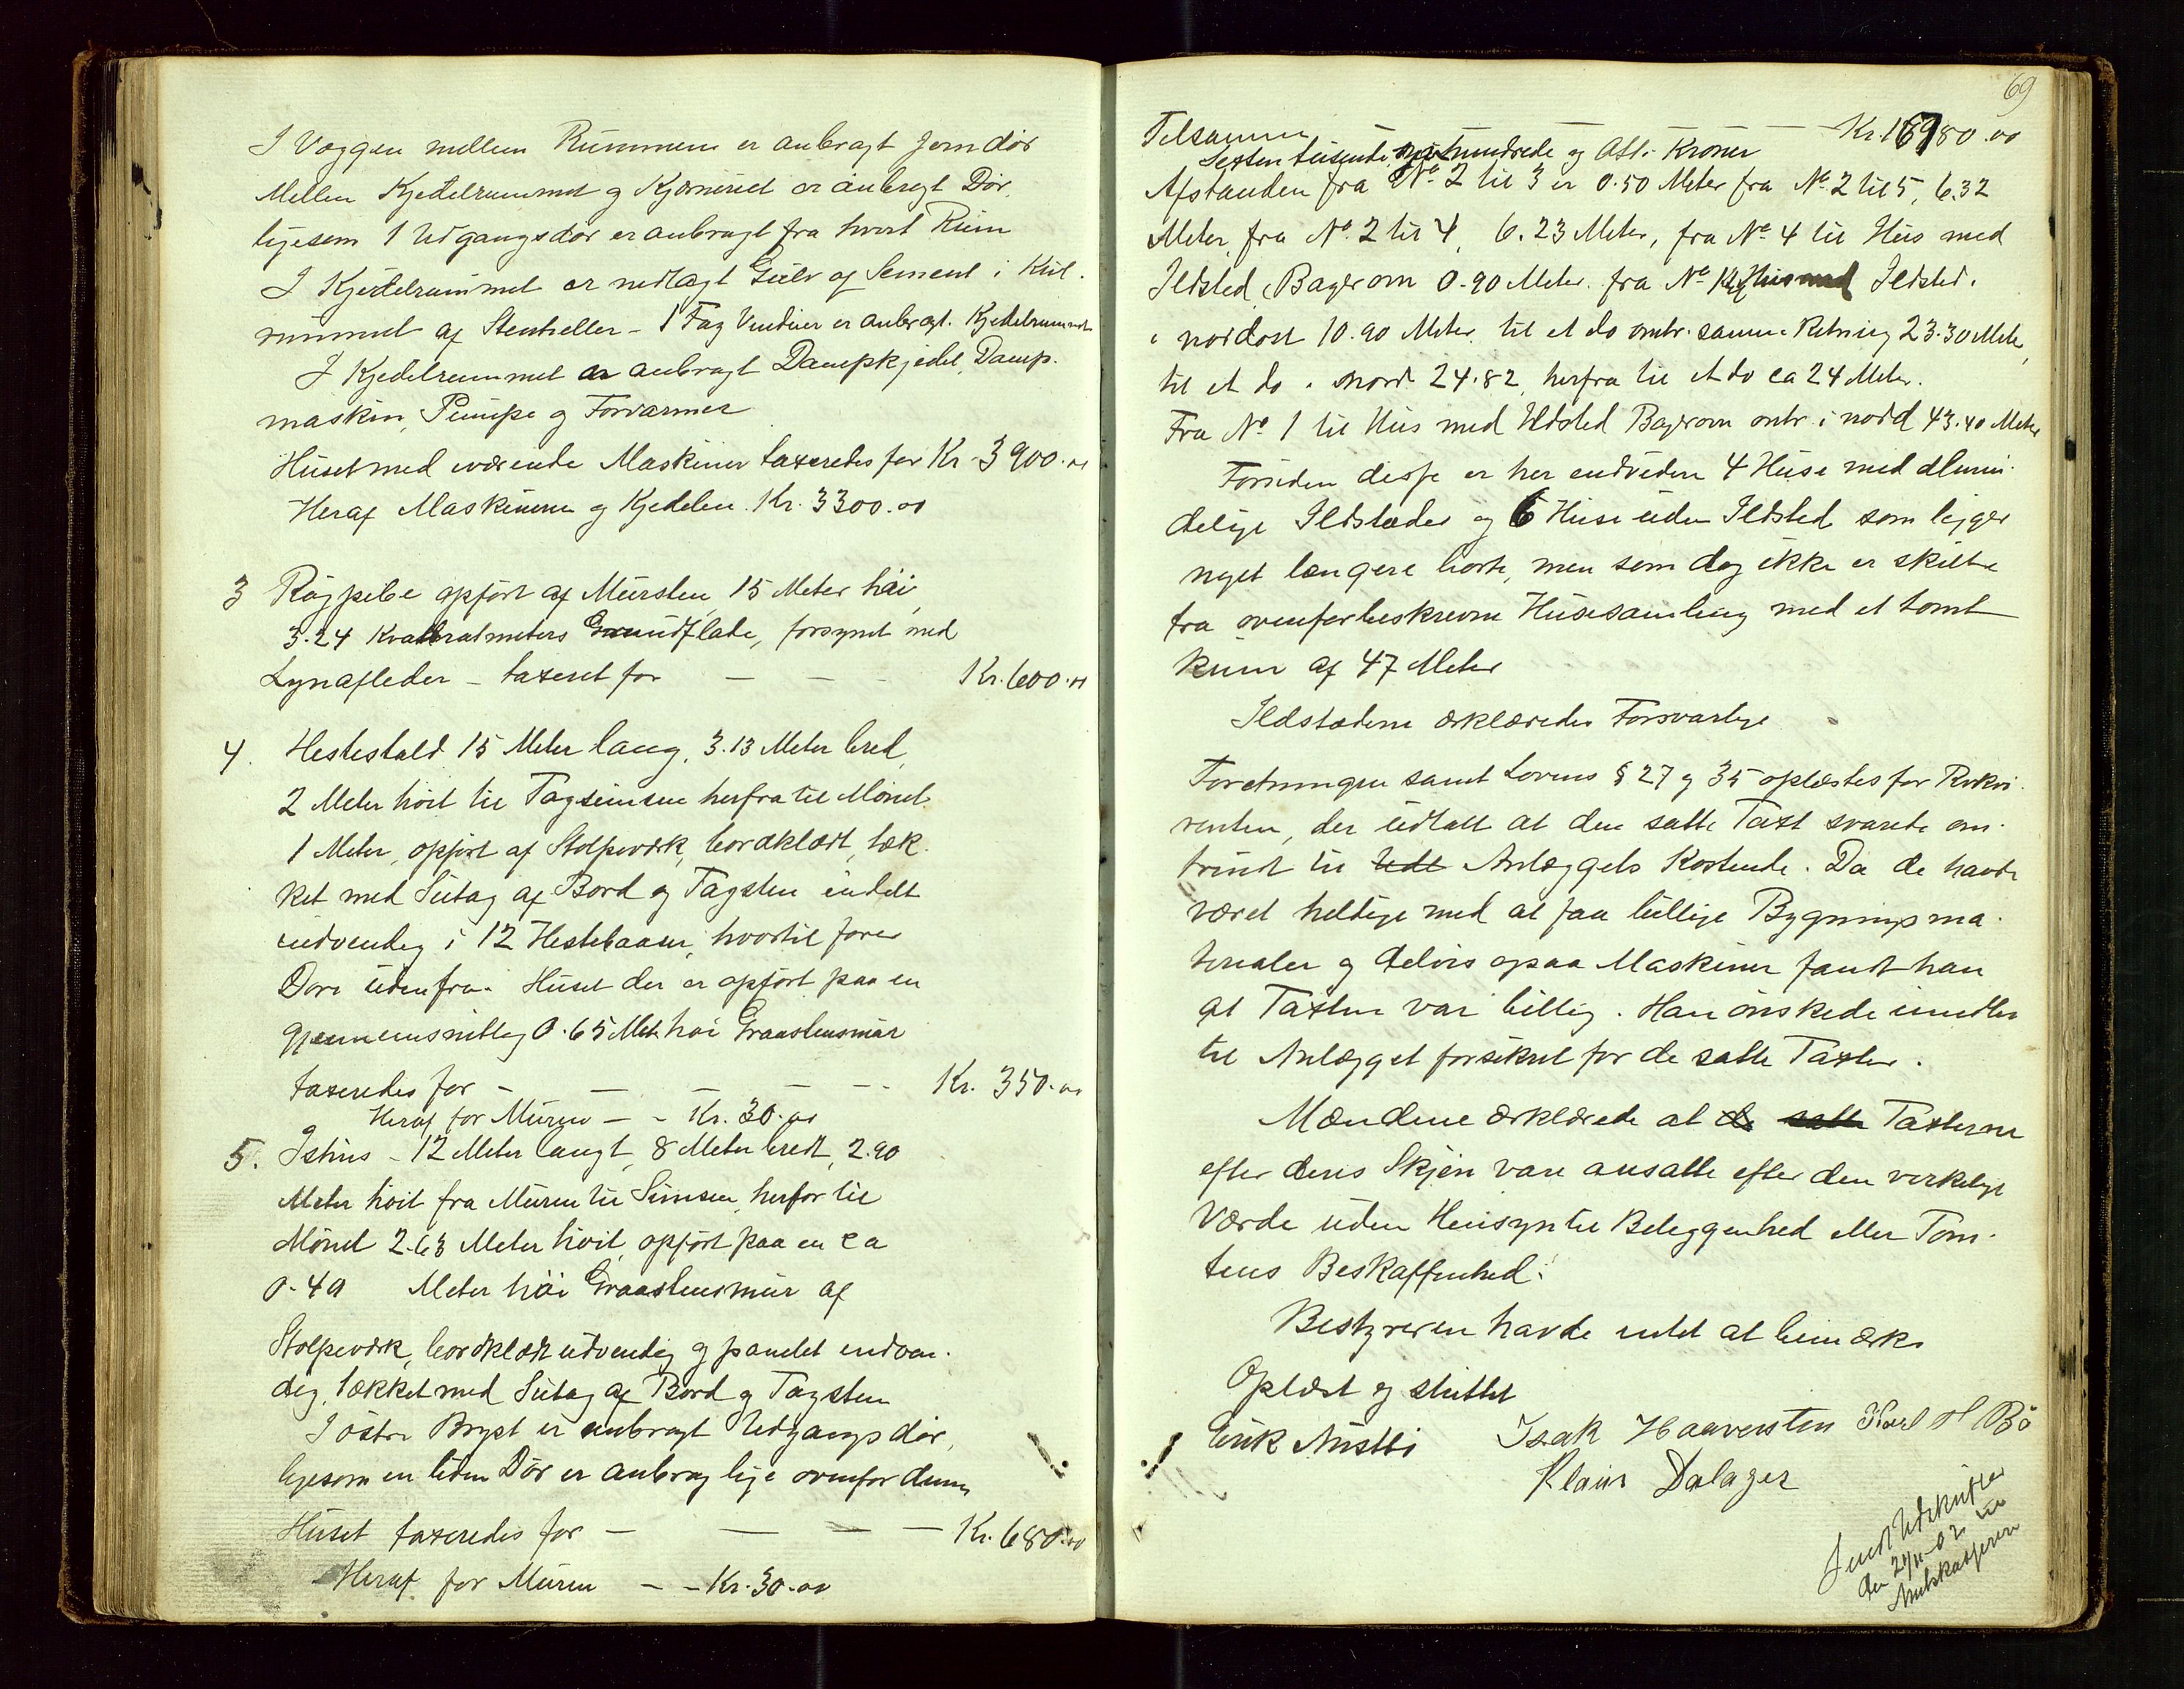 I Væggen mellem Rummene er anbragt Jerndør
Mellem Kjedelrummet og Kjørneriet er anbragt Dør,
ligesom 1 Udgangsdør er anbragt fra hvert Rum
I Kjedelrummet er nedlagt Gulv af Sement i Kul-
rummet af Stenheller - 1 Fag Vinduer er anbragt. Kjedelrummet
I Kjedelrummet er anbragt Dampkjedel, Damp-
maskin, Pumpe og Forvarmer
Huset med iværende Maskiner taxeredes for Kr. 3900.00
Heraf Maskinerne og Kjedelen. Kr. 3300.00
3 Røgpibe opført af Mursten, 15 Meter høi,
3.24 Kvadratmeters Grundflade, forsynet med
Lynafleder - taxeret for — — - Kr. 600.00
4. Hestestald 15 Meter lang, 3.13 Meter bred,
2 Meter høit til Tagsimsen herfra til Mønet
1 Meter, opført af Stolpeværk, bordklædt, tæk-
ket med Sutag af Bord og Tagsten inddelt
indvendig i 12 Hestebaaser, hvortil fører
Døre udenfra. Huset der er opført paa en
gjennemsnitlig 0.65 Met. høi Graastensmur
taxeredes for - — — — - - Kr. 350.00
Heraf for Muren — - Kr. 30.00
5. Ishus - 12 Meter langt, 8 Meter bredt, 2.90
Meter høit fra Muren til Simsen, herfor til
Mønet 2.63 Meter høit, opført paa en ca
0.40 Meter høi Graastensmur af
Stolpeværk, bordklædt udvendig og panelet indven-
dig, tækket med Sutag af Bord og Tagsten
I østre Bryst er anbragt Udgangsdør,
ligesom en liden Dør er anbrag lige ovenfor denne
Huset taxeredes for — — — — Kr. 680.00
Heraf for Muren — - Kr. 30.00
69
Tilsamme — — — Kr. 16980.00
Sexten tusinde, nihundrede og Otti Kroner
Afstanden fra No 2 til 3 er 0.50 Meter fra No 2 til 5, 6.32
Meter, fra No 2 til 4, 6.23 Meter, fra No 4 til Hus med
Ildsted, Bagerom 0.90 Meter. fra No 1 til Hus med Ildsted.
i nordost 10.90 Meter, til et do omtr. samme Retning 23.30 Meter,
til et do i nord 24.82, herfra til et do ca 24 Meter.
Fra No 1 til Hus med Ildsted Bagerom omtr. i nord 43.40 Meter
Foruden disse er her endvidere 4 Huse med almin-
delige Ildstæder og 6 Huse uden Ildsted som ligger
noget længere borte, men som dog ikke er skilte
fra ovenforbeskrevne Husesamling med et tomt
Rum af 47 Meter
Ildstæderne erklæredes Forsvarlige
Forretningen samt Lovens § 27 og 35 oplæstes for Rekvi-
renten, der udtalt at den satte Taxt svarede om-
trindt til Anlæggets Kostende. Da de havde
været heldige med at faa billige Bygningsma-
terialer og delvis ogsaa Maskiner fandt han
at Taxten var billig. Han ønskede imidler
til Anlægget forsikret for de satte Taxter.
Mændene erklærede at de satte Taxterne
efter deres Skjøn vare ansatte efter den virkelige
Værdi uden Hensyn til Beliggenhed eller Tom-
tens Beskaffenhed.
Bestyreren havde intet at bemærke
Oplæst og sluttet
Isak Haaversten Karl H Bø
Klaus Dalager
Sendt Udskrifter
den 29/11-02 til
Amtskasseren